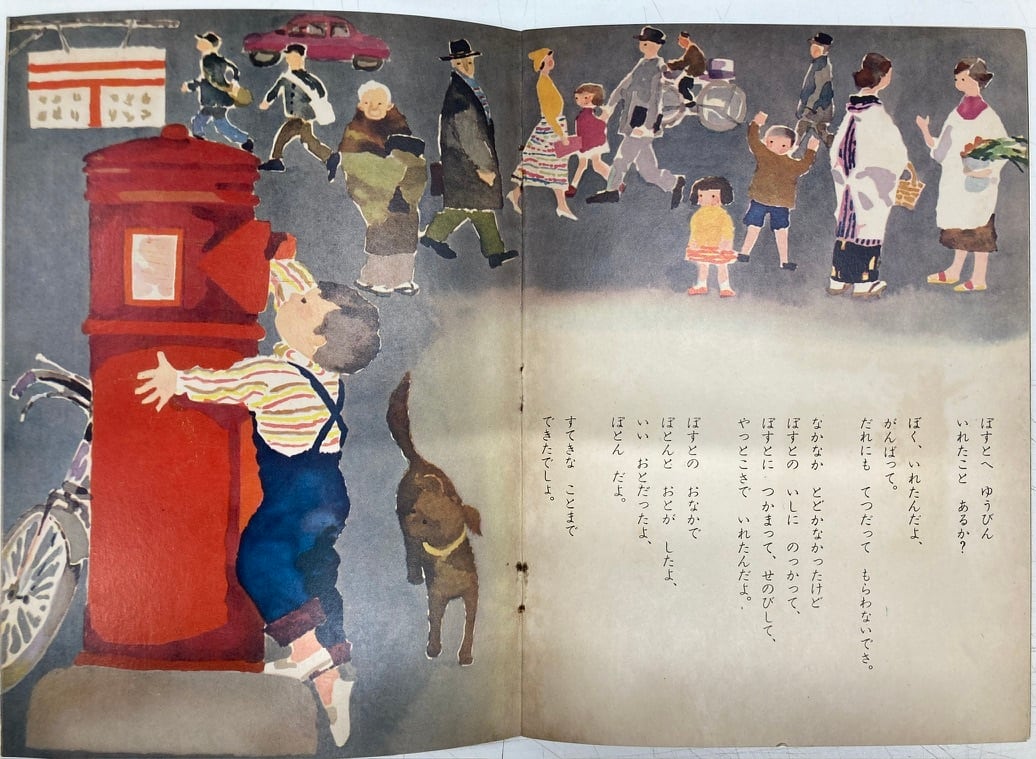 ぽすとへ　ゆうびん
いれたこと　あるか？
ぼく、いれたんだよ、
がんばって。
だれにも　てつだって　もらわないでさ。
なかなか　とどかなかったけど
ぽすとの　いしに　のっかって、
ぽすとに　つかまって、せのびして、
やっとこさで　いれたんだよ。
ぽすとの　おなかで
ぽとんと　おとが　したよ、
いい　おとだったよ、
ぽとん　だよ。
すてきな　ことまで
できたでしょ。